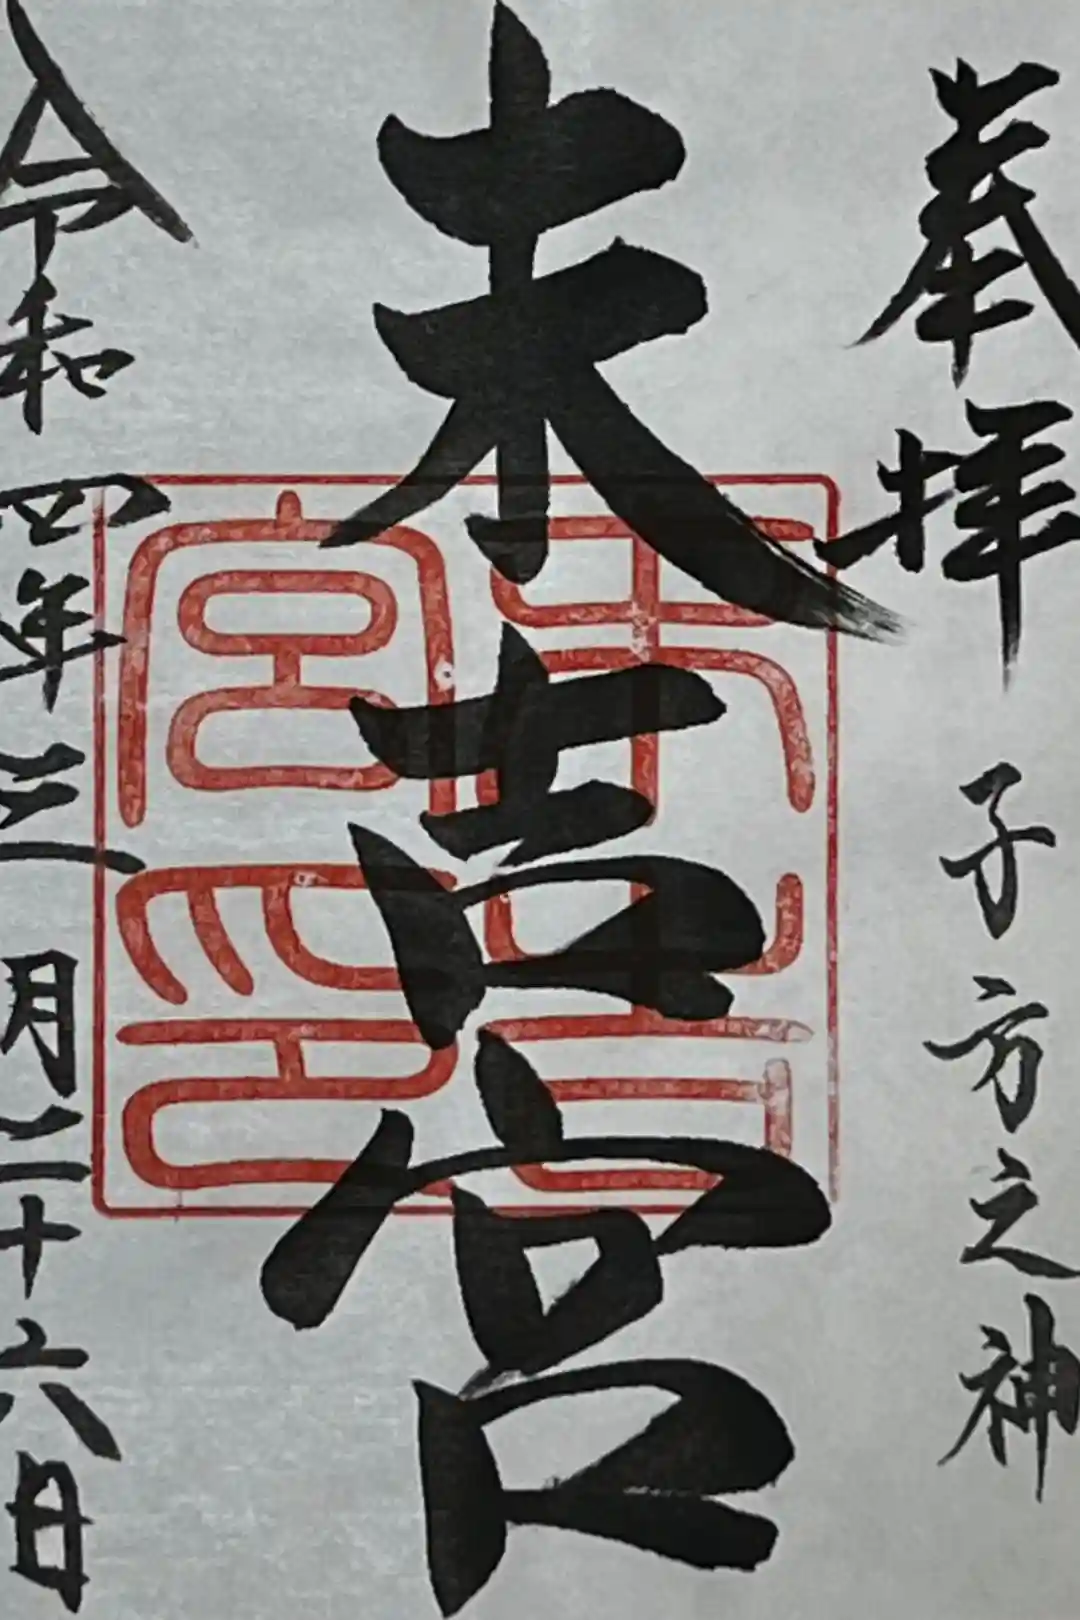 奉拝 子方之神
未吉宮
未吉宮印
令和四年三月二十六日